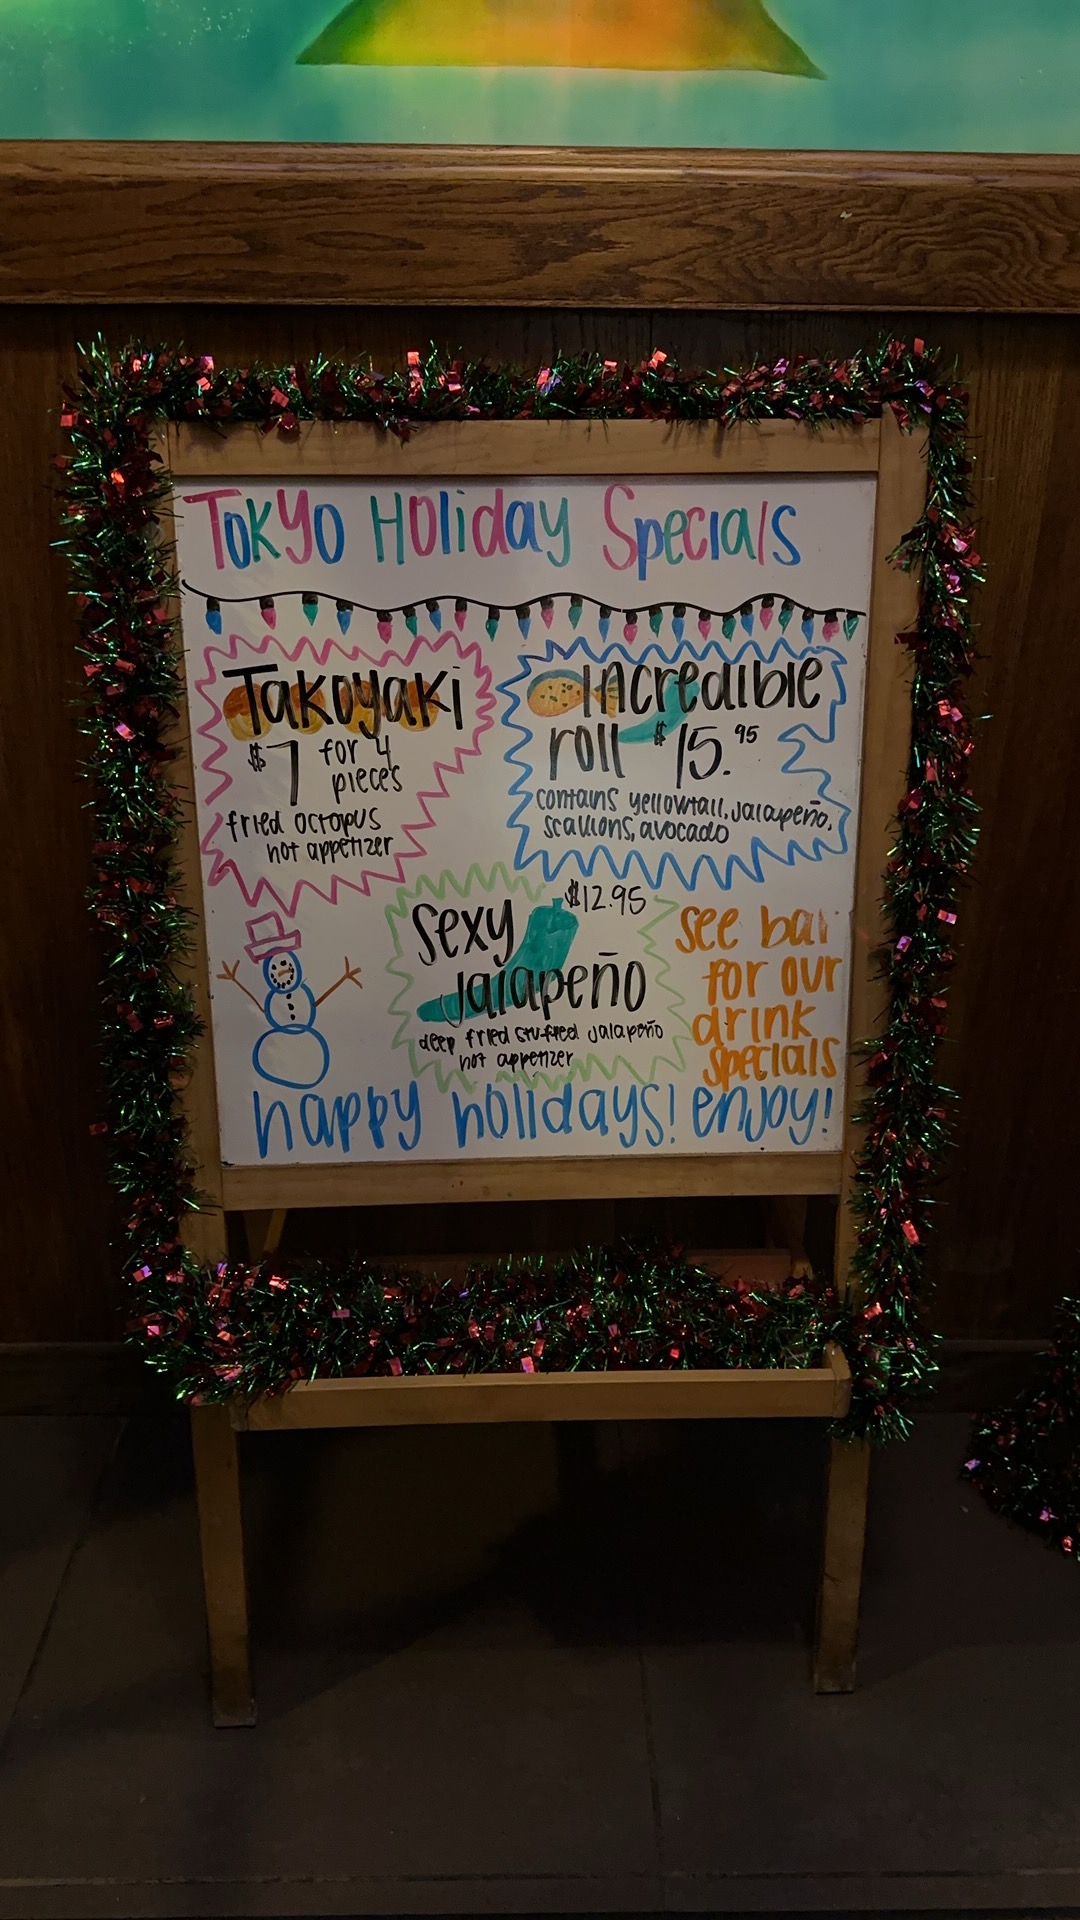 Tokyo Holiday Specials
Takoyaki
$7 for 4
pieces
fried octopus
hot appetizer
incredible
roll $15.95
contains yellowtail, jalapeño,
scallions, avocado
Sexy $12.95
Jalapeño
deep fried stuffed jalapeño
hot appetizer
see bar
for our
drink
specials
happy holidays! enjoy!